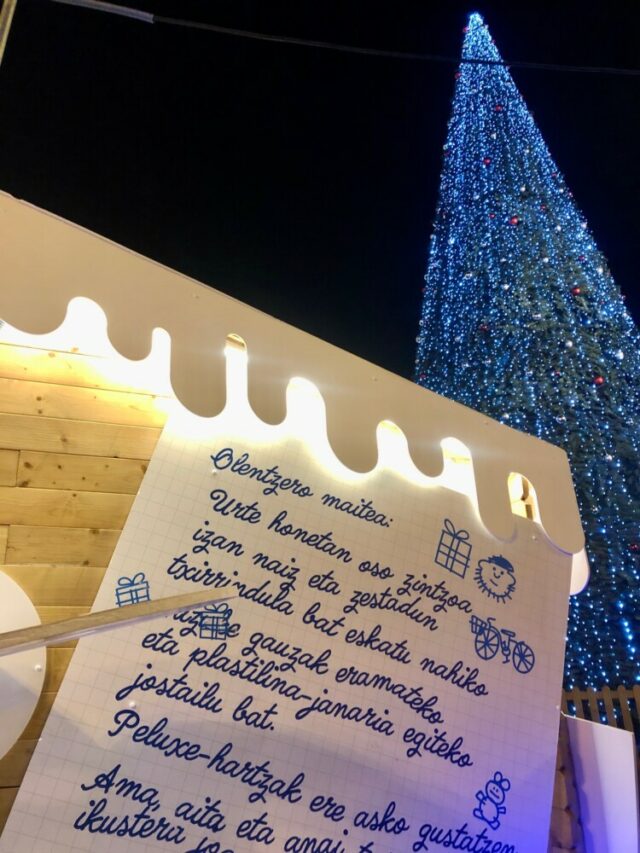 Olentzero maitea:
Urte honetan oso zintzoa
izan naiz eta zestadun
txirrindula bat eskatu nahiko
gauzak eramateko
eta plastilina-janaria egiteko
jostailu bat.
Peluxe-hartzak ere asko gustatzen
Ama, aita eta
ikustera